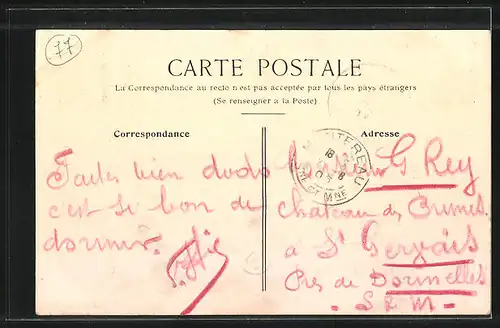 77
CARTE POSTALE
La Correspondance au recto n'est pas acceptée par tous les pays étrangers
(Se renseigner a la Poste)
Correspondance
Adresse
MONTEREAU
SEINE ET MNE
Faites bien dodo
c'est si bon de
dormir.
G Rey
chateau des
à St Gervais
Près de Dormelles
- S & M -